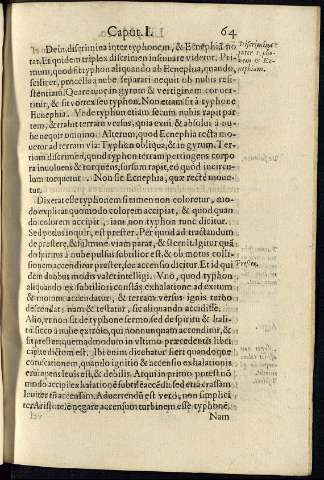 Caput. I. 64
Dein discrimina inter typhonem, & Ecnephiã no
tat. Et quidem triplex discrimen insinuare videtur. Pri-
mum, quod sit typhon aliquando ab Ecnephia, quando,
scilicet, procella à nube separari nequit ob nubis resi-
stentiam. Quare tunc in gyrum & vertiginem conuer-
titur, & sit vortex seu typhon. Non etiam fit à typhone
Ecnephia. Vnde typhon etiam secum nubis rapit par
tem, & trahit terram versus, quia eam & absolui à nu-
be nequit omnino. Alterum, quod Ecnephia recta mo-
uetur ad terram via: Typhon obliqua, & in gyrum. Ter-
tium discrimen, quod typhon terram pertingens corpo
ra inuoluens & torquens, sursum rapit, eo quod in circu-
lum torquetur. Non sic Ecnephia, quæ rectè moue-
tur.
Discrimina
inter typho-
nem & Ec-
nephiam.
Dixerat esse typhonem si tamen non coloretur, mo-
do explicat quomodo colorem accipiat, & quod quan
do colorem accipit, iam non typhon tunc dicitur.
Sed potius inquit, est prester. Per quid ad tractandum
de prestere, & fulmine viam parat, & sternit. Igitur quã
do primus à nube pulsus subtilior est, & ob motus colli-
sionem accenditur prester, seu accensio dicitur. Et id qui
dem duobus modis valet intelligi. Vno, quod typhon
aliquando ex subtiliori constãs exhalatione ad exitum
& motum accendatur, & terram versus ignis turbo
descendat: nam & testatur, sic aliquando accidisse.
Prester.
Alio, vt non sit de typhone sermo sed de spiritu & hali-
tu sicco à nube extrorso, qui non nunquam accenditur, &
fit prester quemadmodum in vltimo præcedentis libri
capite dictum est. Ibi enim dicebatur fieri quandoque
coruscationem, quando ignitio & accensio exhalationis
erumpens leuis est, & debilis. Atqui in primo potest nõ
modo accipi exhalationẽ subtilẽ accẽdi sed etiã crassam
leuiter tñ accensam. Aduertendũ est verò, non simplici
ter Aristotelẽ negare accensum turbinem esse typhonẽ.
Nam